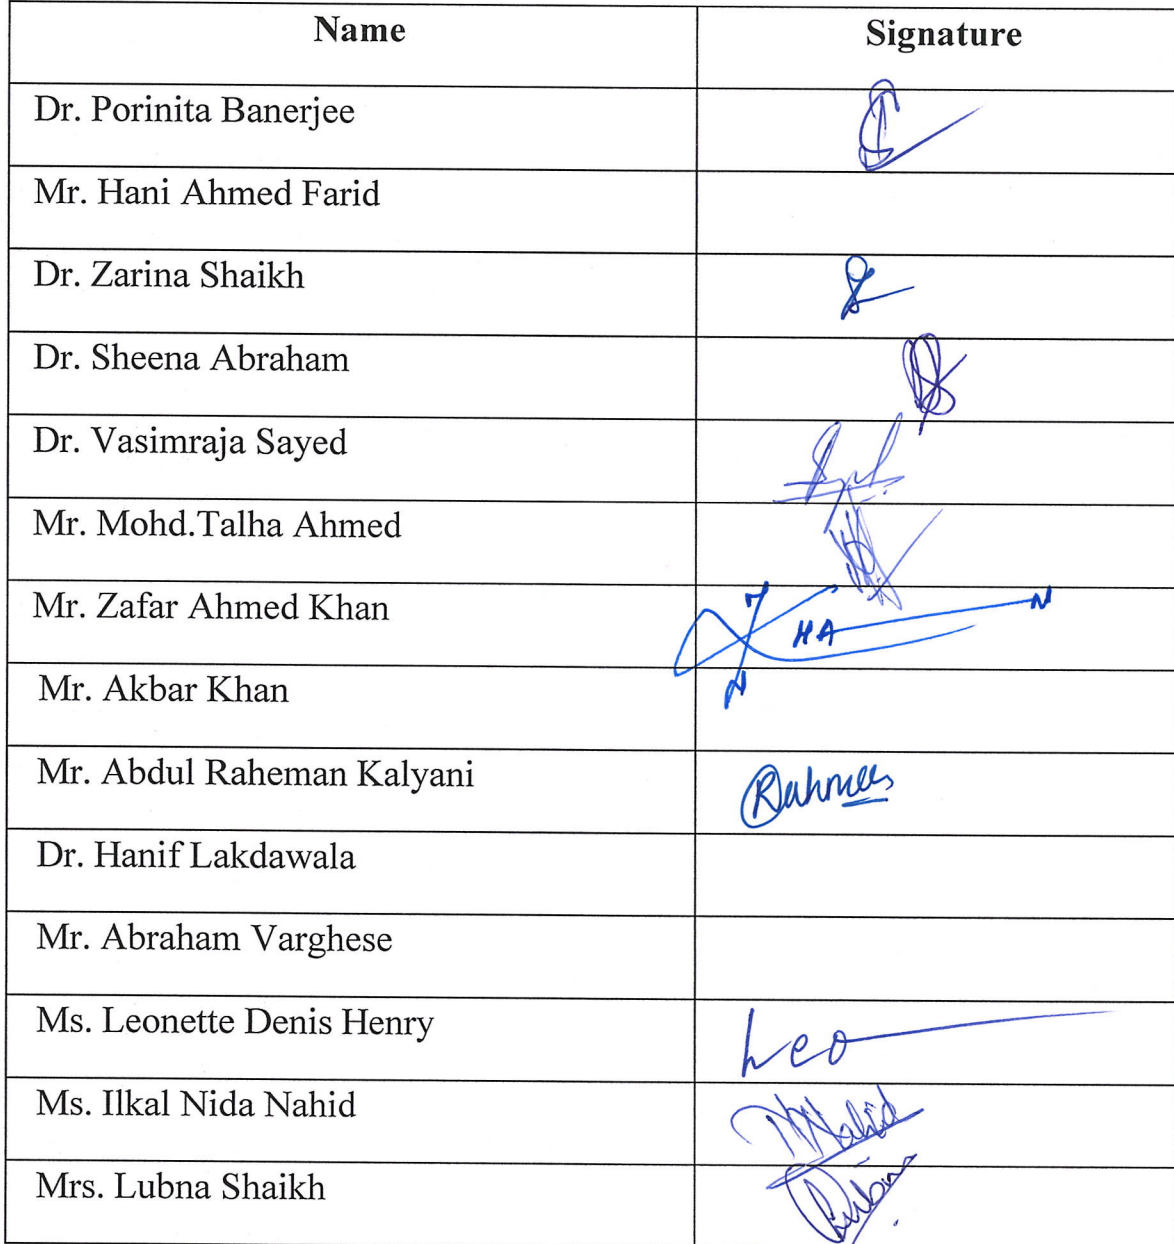 Name Signature
Dr. Porinita Banerjee
Mr. Hani Ahmed Farid
Dr. Zarina Shaikh
Dr. Sheena Abraham
Dr. Vasimraja Sayed
Mr. Mohd.Talha Ahmed
Mr. Zafar Ahmed Khan
Mr. Akbar Khan
Mr. Abdul Raheman Kalyani
Dr. Hanif Lakdawala
Mr. Abraham Varghese
Ms. Leonette Denis Henry Leo
Ms. Ilkal Nida Nahid Nahid
Mrs. Lubna Shaikh Lubna